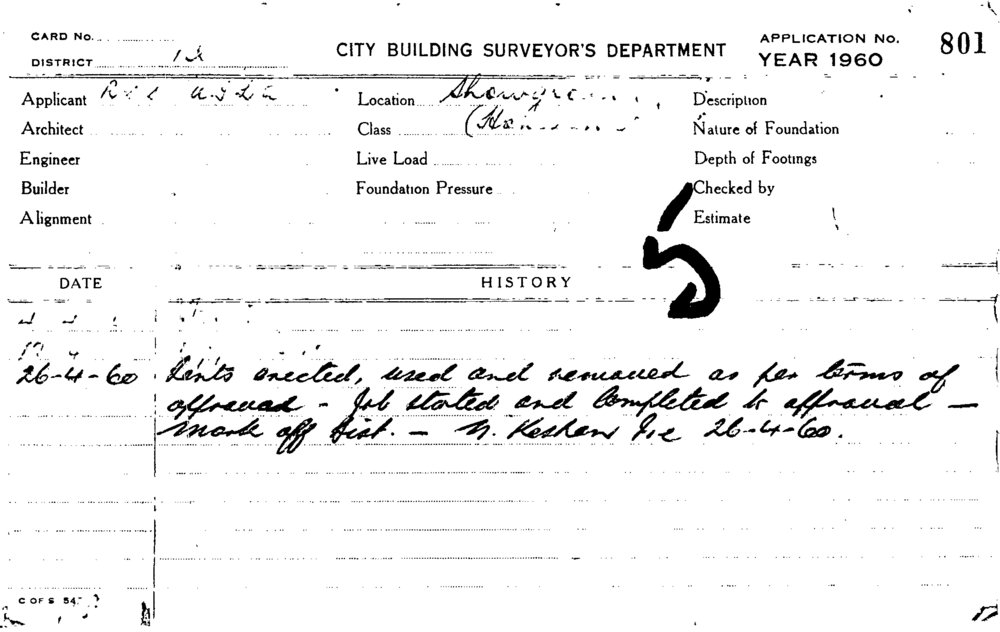 CARD No.
DISTRICT 12
CITY BUILDING SURVEYOR'S DEPARTMENT
APPLICATION No. 801
YEAR 1960
Applicant
Architect
Engineer
Builder
Alignment
Location
Class
Live Load
Foundation Pressure
Description
Nature of Foundation
Depth of Footings
Checked by
Estimate
5
DATE HISTORY
26-4-60 Tents erected, used and removed as per terms of
approval - Job started and Completed to approval —
Mark off list. - 26-4-60.
C OF S 54